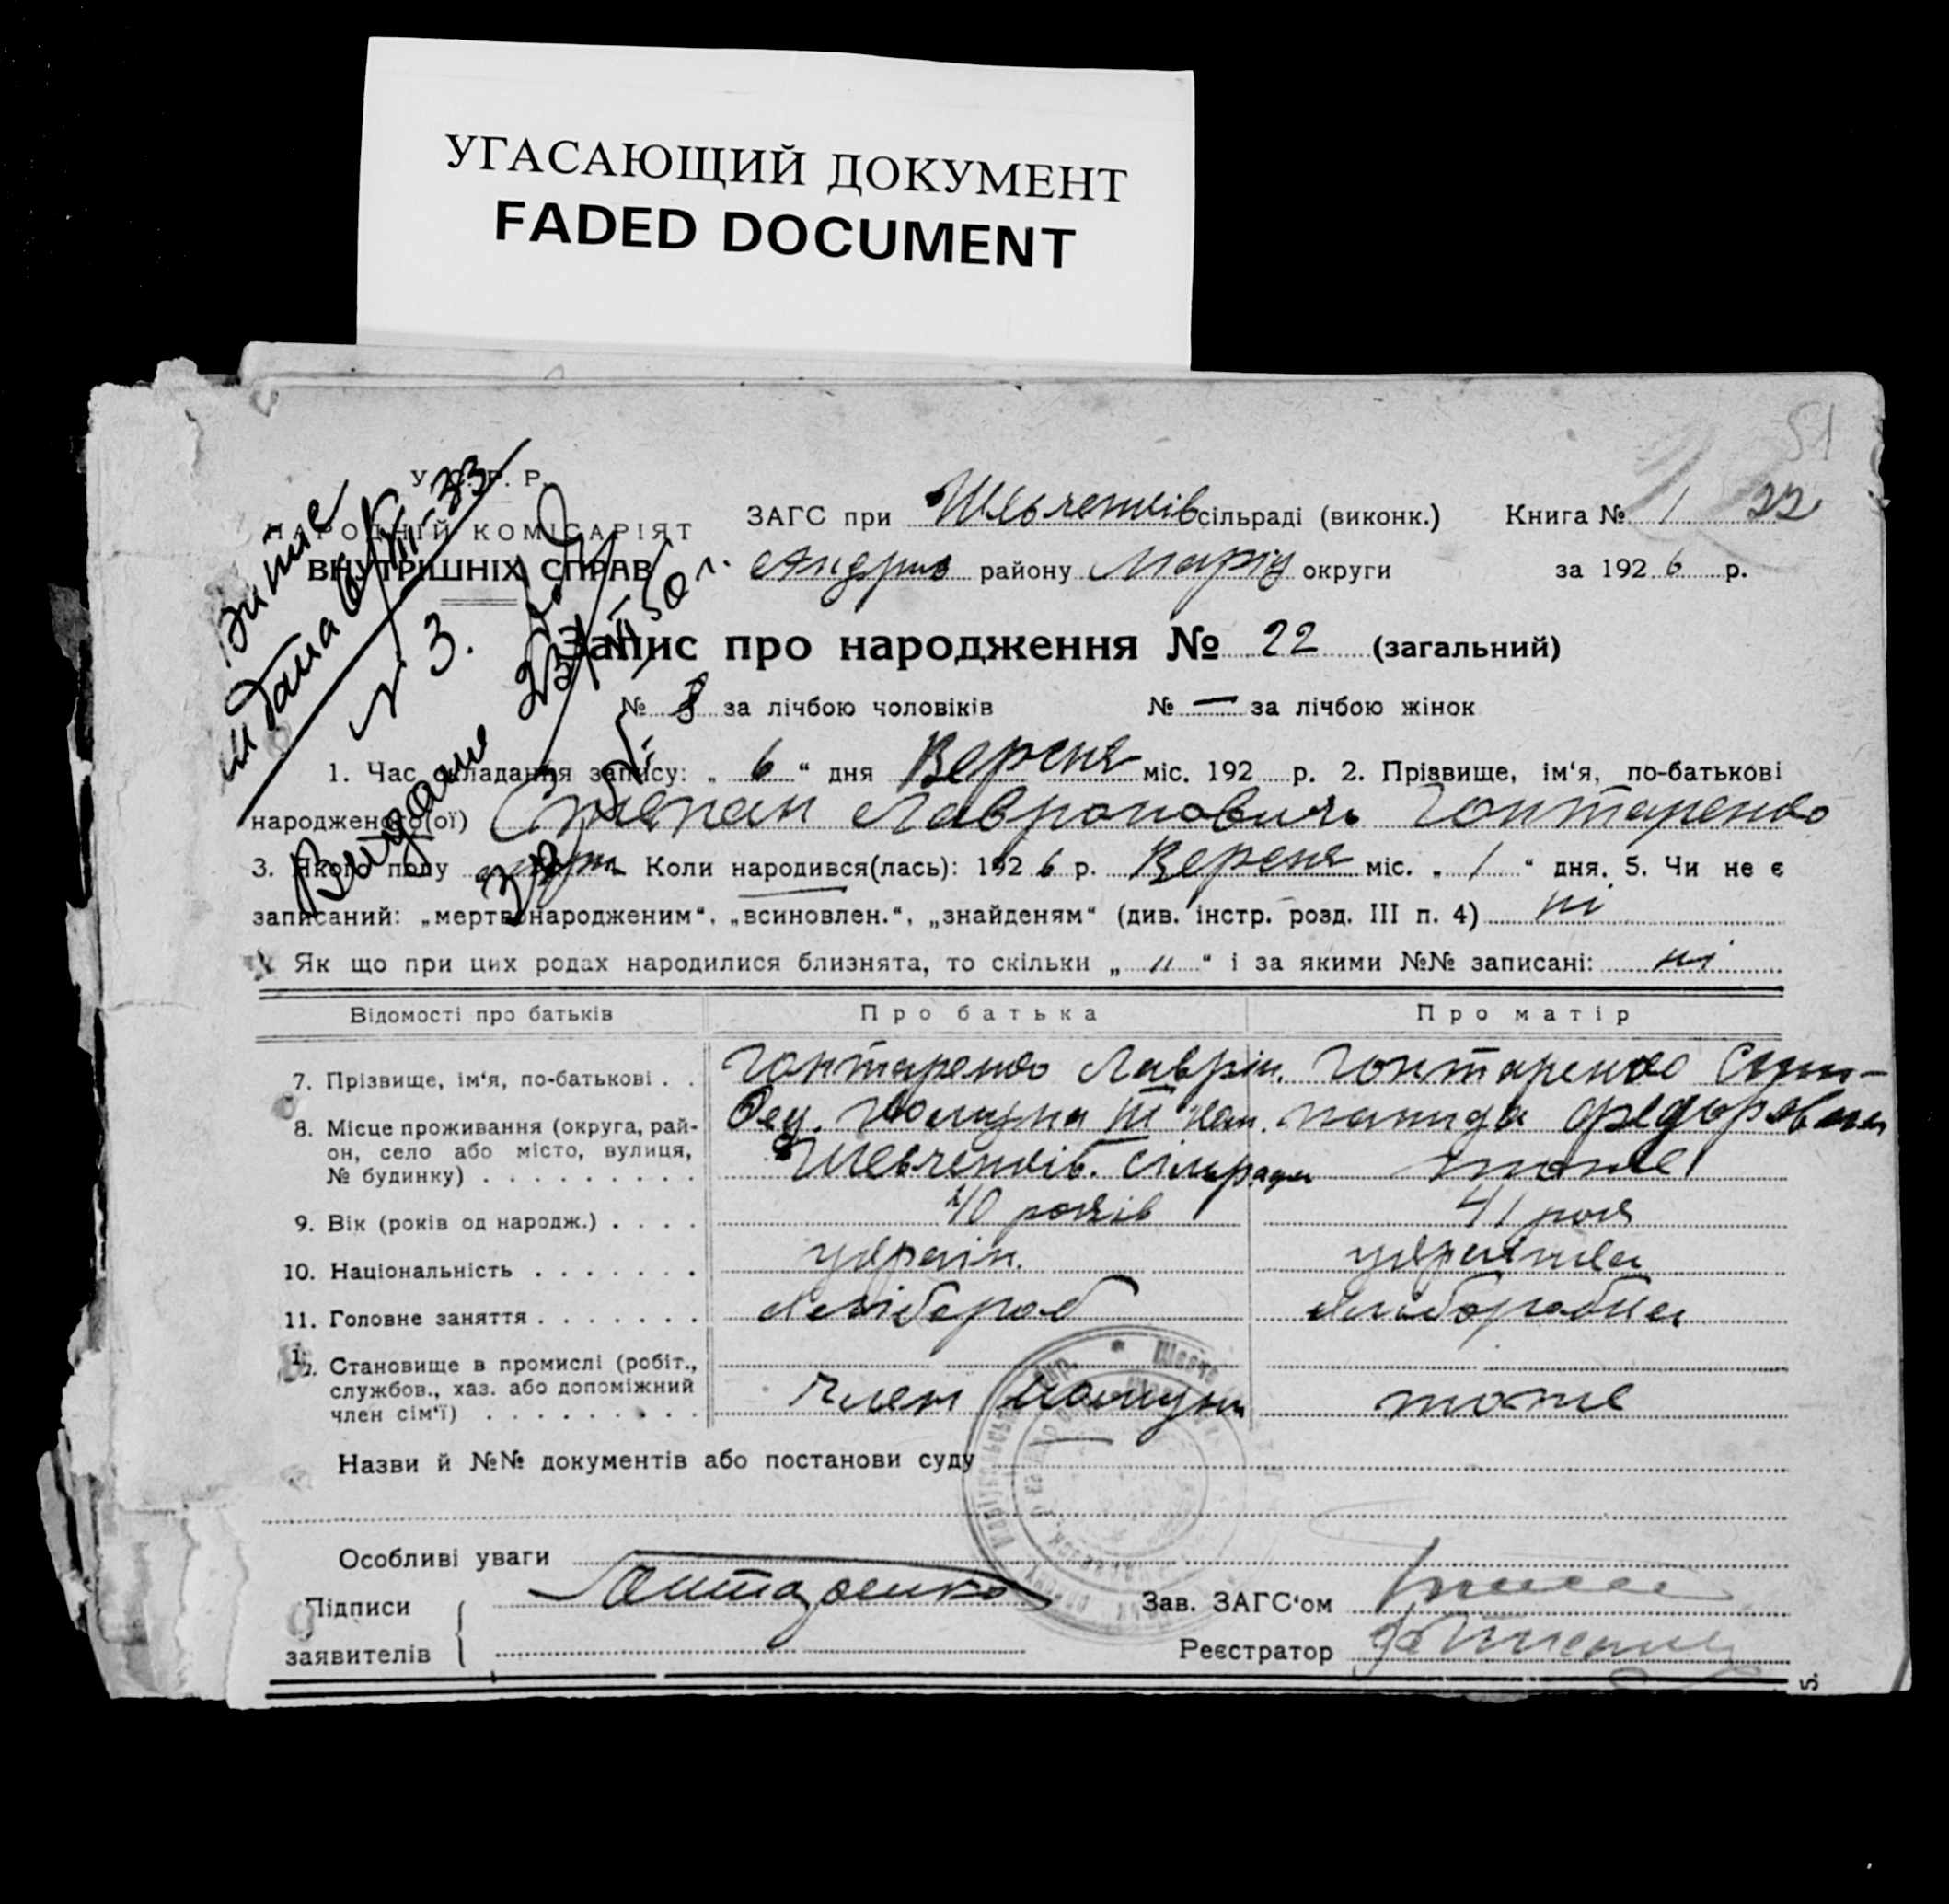 УГАСАЮЩИЙ ДОКУМЕНТ
FADED DOCUMENT
51
У. С. Р. Р.
НАРОДНІЙ КОМІСАРІЯТ
ВНУТРІШНІХ СПРАВ
ЗАГС при Шевченків сільраді (виконк.) Книга № 1 22
Андрів району Марію округи за 192 6 р.
Запис про народження № 22 (загальний)
№ 8 за лічбою чоловіків № — за лічбою жінок
1. Час складання запису: „ 6 “ дня Вересня міс. 192 р. 2. Прізвище, ім'я, по-батькові
народженого(ої) Степан Лавронович Гонтаренко
3. Якого полу Коли народився(лась): 192 6 р. Вересня міс. „ 1 “ дня. 5. Чи не є
записаний: „мертвонародженим“, „всиновлен.“, „знайденям“ (див. інстр. розд. III п. 4) ні
Як що при цих родах народилися близнята, то скільки „ " “ і за якими №№ записані: ні
Відомості про батьків Про батька Про матір
7. Прізвище, ім'я, по-батькові . . Гонтаренко Лаврін. Гонтаренко
8. Місце проживання (округа, рай-
он, село або місто, вулиця,
№ будинку) . . . . . . . . . Шевченків. сільради тоже
Федоровна
9. Вік (років од народж.) . . . . 40 років 41 рок
10. Національність . . . . . . . україн. українка
11. Головне заняття . . . . . . . хлібороб хліборобка
12. Становище в промислі (робіт.,
службов., хаз. або допоміжний
член сім'ї) . . . . . . . . . член комуни тоже
Назви й №№ документів або постанови суду
Особливі уваги
Підписи Гонтаренко Зав. ЗАГС'ом
заявителів Реєстратор
5.